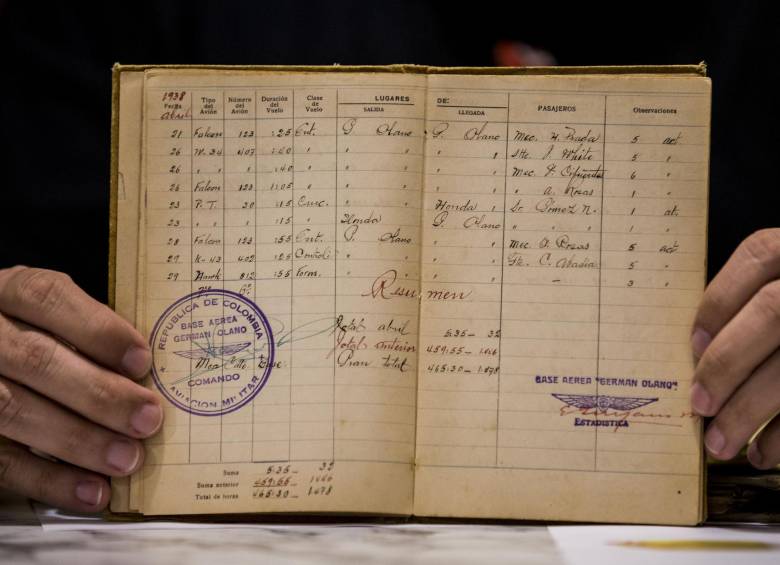 1938
Fecha Tipo del Avión Número del Avión Duración del Vuelo Clase de Vuelo LUGARES DE: SALIDA LLEGADA PASAJEROS Observaciones
Abril
21 Falcon 123 :25 Ent. G. Olano G. Olano Mec. H. Prada 5 act
26 W. 34 407 " " " " Stte. J. White 5 "
26 " " :40 " " " " " Mec. 6 "
26 Falcon 123 1:05 " " " " " " A. Rosas 1 "
23 P.T. 20 :15 Honda " Sr. Gómez N. 1 at.
23 " " :15 " Honda G. Olano " " 1 "
28 Falcon 123 :55 Ent. P. Olano " " Mec. A. Rosas 5 act
27 K-43 402 :25 " " " " C. Abadia 5 "
29 Hawk 812 :55 Form. " " " " — 3 "
Resumen
Total abril 5:35- 32
Total anterior 459:55- 1.046
Gran total 465:30- 1.078
REPUBLICA DE COLOMBIA
BASE AEREA
GERMAN OLANO
COMANDO
AVIACION MILITAR
BASE AEREA "GERMAN OLANO"
ESTADISTICA
Suma 5:35- 32
Suma anterior 459:55- 1.046
Total de horas 465:30- 1.078